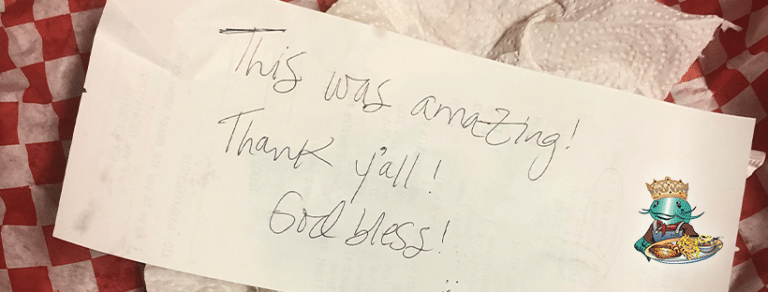 This was amazing!
Thank y'all!
God bless!